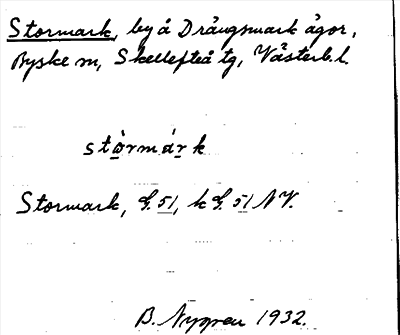 Stormark, by å Drängsmark ägor,
Byske sn, Skellefteå tg, Västerb. l.
stòrmárk
Stormark, G. 51, k G. 51 NV.
B. Nygren 1932.